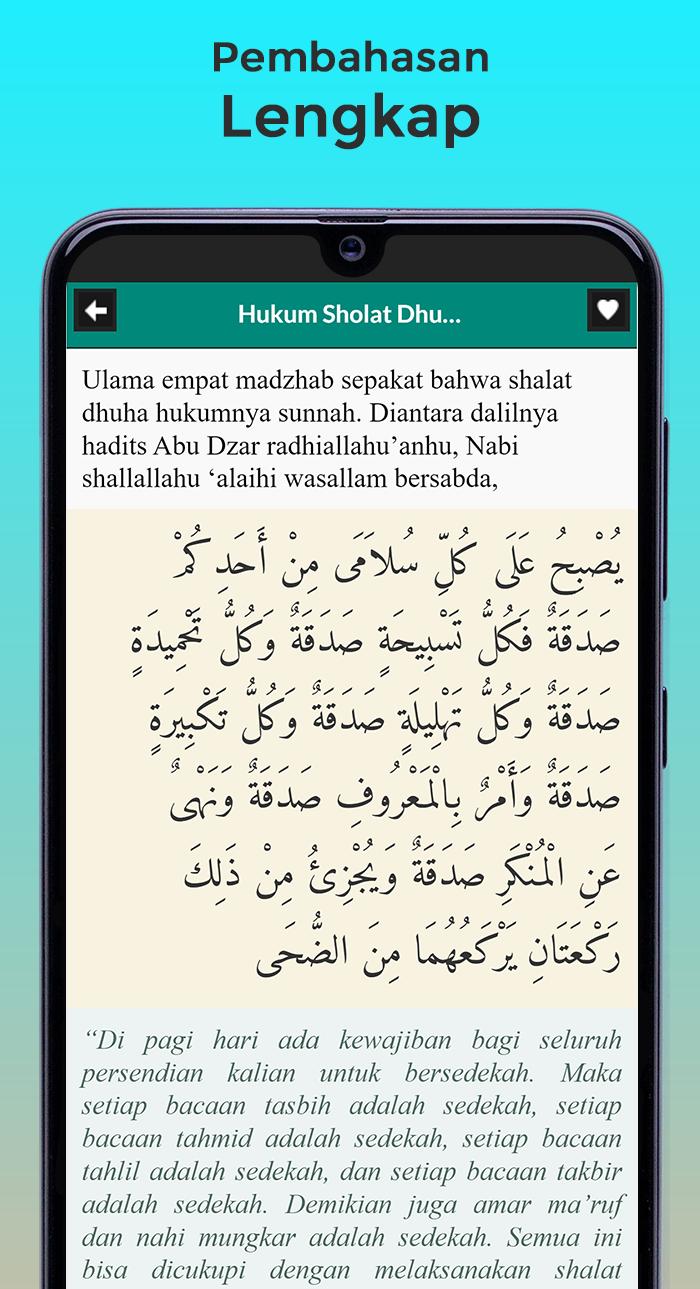 Pembahasan
Lengkap
Hukum Sholat Dhu...
Ulama empat madzhab sepakat bahwa shalat
dhuha hukumnya sunnah. Diantara dalilnya
hadits Abu Dzar radhiallahu’anhu, Nabi
shallallahu ‘alaihi wasallam bersabda,
يُصْبِحُ عَلَى كُلِّ سُلاَمَى مِنْ أَحَدِكُمْ
صَدَقَةٌ فَكُلُّ تَسْبِيحَةٍ صَدَقَةٌ وَكُلُّ تَحْمِيدَةٍ
صَدَقَةٌ وَكُلُّ تَهْلِيلَةٍ صَدَقَةٌ وَكُلُّ تَكْبِيرَةٍ
صَدَقَةٌ وَأَمْرٌ بِالْمَعْرُوفِ صَدَقَةٌ وَنَهْىٌ
عَنِ الْمُنْكَرِ صَدَقَةٌ وَيُجْزِئُ مِنْ ذَلِكَ
رَكْعَتَانِ يَرْكَعُهُمَا مِنَ الضُّحَى
“Di pagi hari ada kewajiban bagi seluruh
persendian kalian untuk bersedekah. Maka
setiap bacaan tasbih adalah sedekah, setiap
bacaan tahmid adalah sedekah, setiap bacaan
tahlil adalah sedekah, dan setiap bacaan takbir
adalah sedekah. Demikian juga amar ma’ruf
dan nahi mungkar adalah sedekah. Semua ini
bisa dicukupi dengan melaksanakan shalat